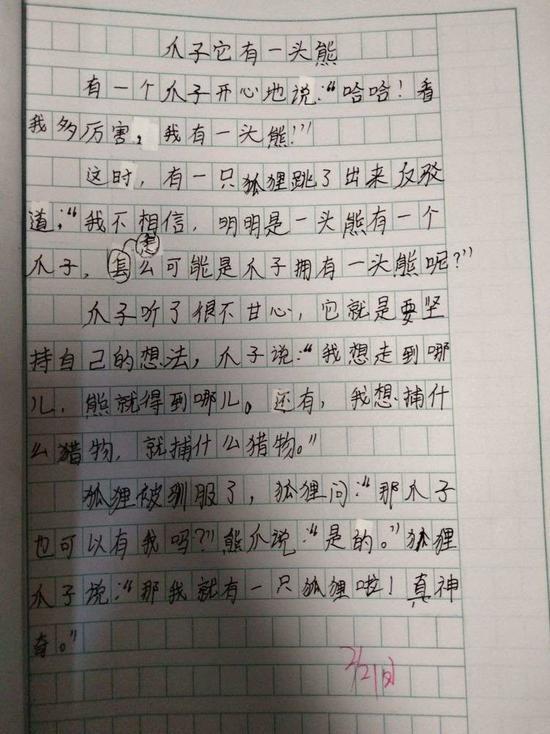 爪子它有一头熊
有一个爪子开心地说:“哈哈!看
我多厉害,我有一头熊!”
这时,有一只狐狸跳了出来反驳
道:“我不相信,明明是一头熊有一个
爪子,怎么可能是爪子拥有一头熊呢?”
爪子听了很不甘心,它就是要坚
持自己的想法,爪子说:“我想走到哪
儿,熊就得到哪儿。还有,我想捕什
么猎物,就捕什么猎物。”
狐狸被驯服了,狐狸问:“那爪子
也可以有我吗?”熊爪说:“是的。”狐狸
爪子说:“那我就有一只狐狸啦!真神
奇。”